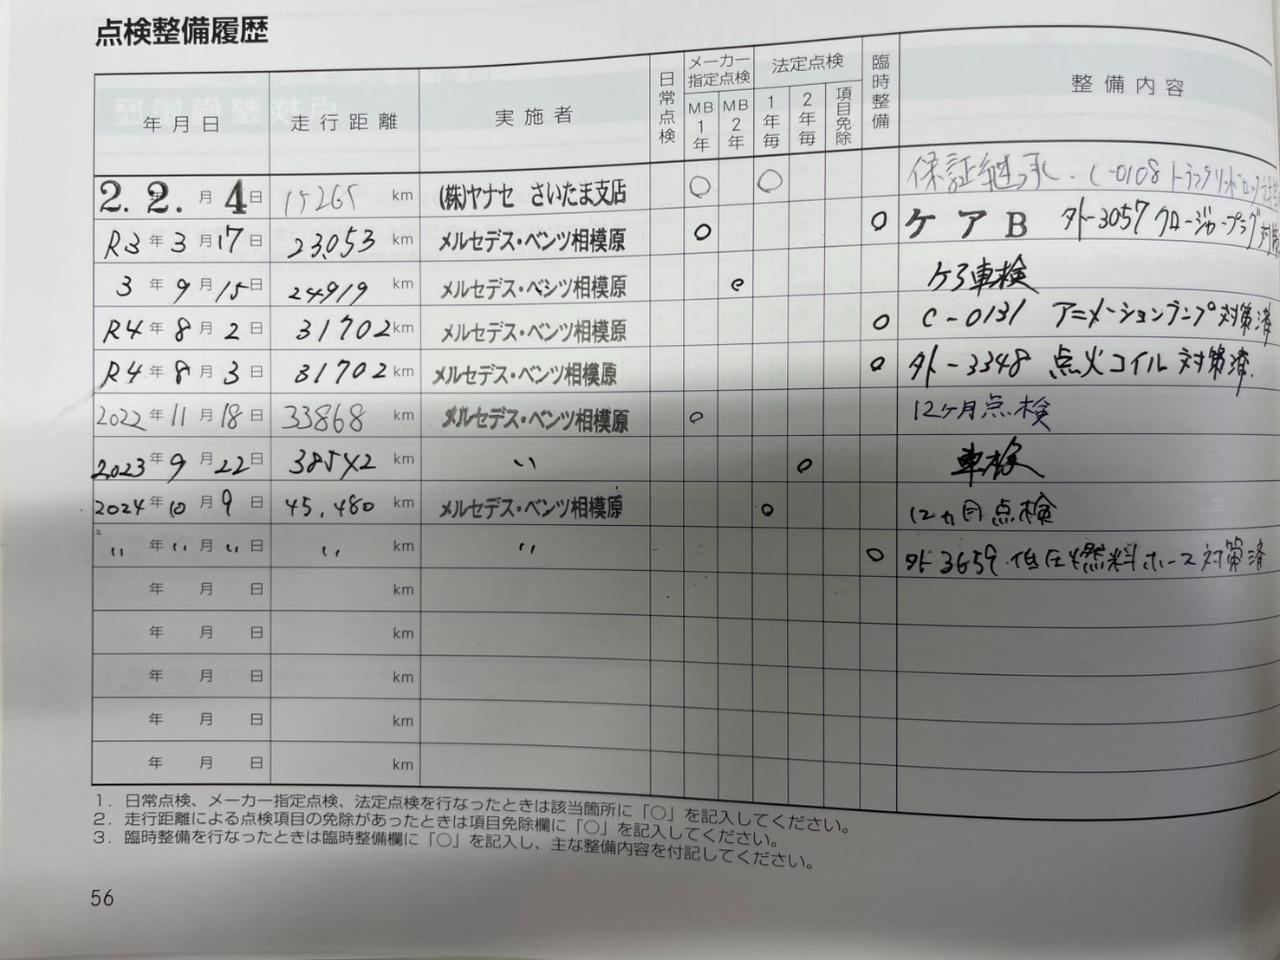 点検整備履歴
年月日 走行距離 実施者 日常点検 メーカー指定点検 MB1年 MB2年 法定点検 1年毎 2年毎 項目免除 臨時整備 整備内容
2. 2. 月 4日 15265 km (株)ヤナセ さいたま支店 ○ ○ 保証継承. C-0108
R3年3月17日 23,053 km メルセデス・ベンツ相模原 ○ ○ ケア B 外-3057 クロージャープラグ対
3年9月15日 24919 km メルセデス・ベンツ相模原 ○ 車検
R4年8月2日 31702 km メルセデス・ベンツ相模原 ○ C-0131 アニメーションランプ対策済
R4年8月3日 31702 km メルセデス・ベンツ相模原 ○ 外-3348 点火コイル対策済.
2022年11月18日 33868 km メルセデス・ベンツ相模原 ○ 12ヶ月点検
2023年9月22日 38542 km 〃 ○ 車検
2024年10月9日 45,480 km メルセデス・ベンツ相模原 ○ 12ヵ月点検
〃年〃月〃日 〃 km 〃 ○ 外3659.低圧燃料ホース対策済
年 月 日 km
年 月 日 km
年 月 日 km
年 月 日 km
年 月 日 km
1．日常点検、メーカー指定点検、法定点検を行なったときは該当箇所に「○」を記入してください。
2．走行距離による点検項目の免除があったときは項目免除欄に「○」を記入してください。
3．臨時整備を行なったときは臨時整備欄に「○」を記入し、主な整備内容を付記してください。
56